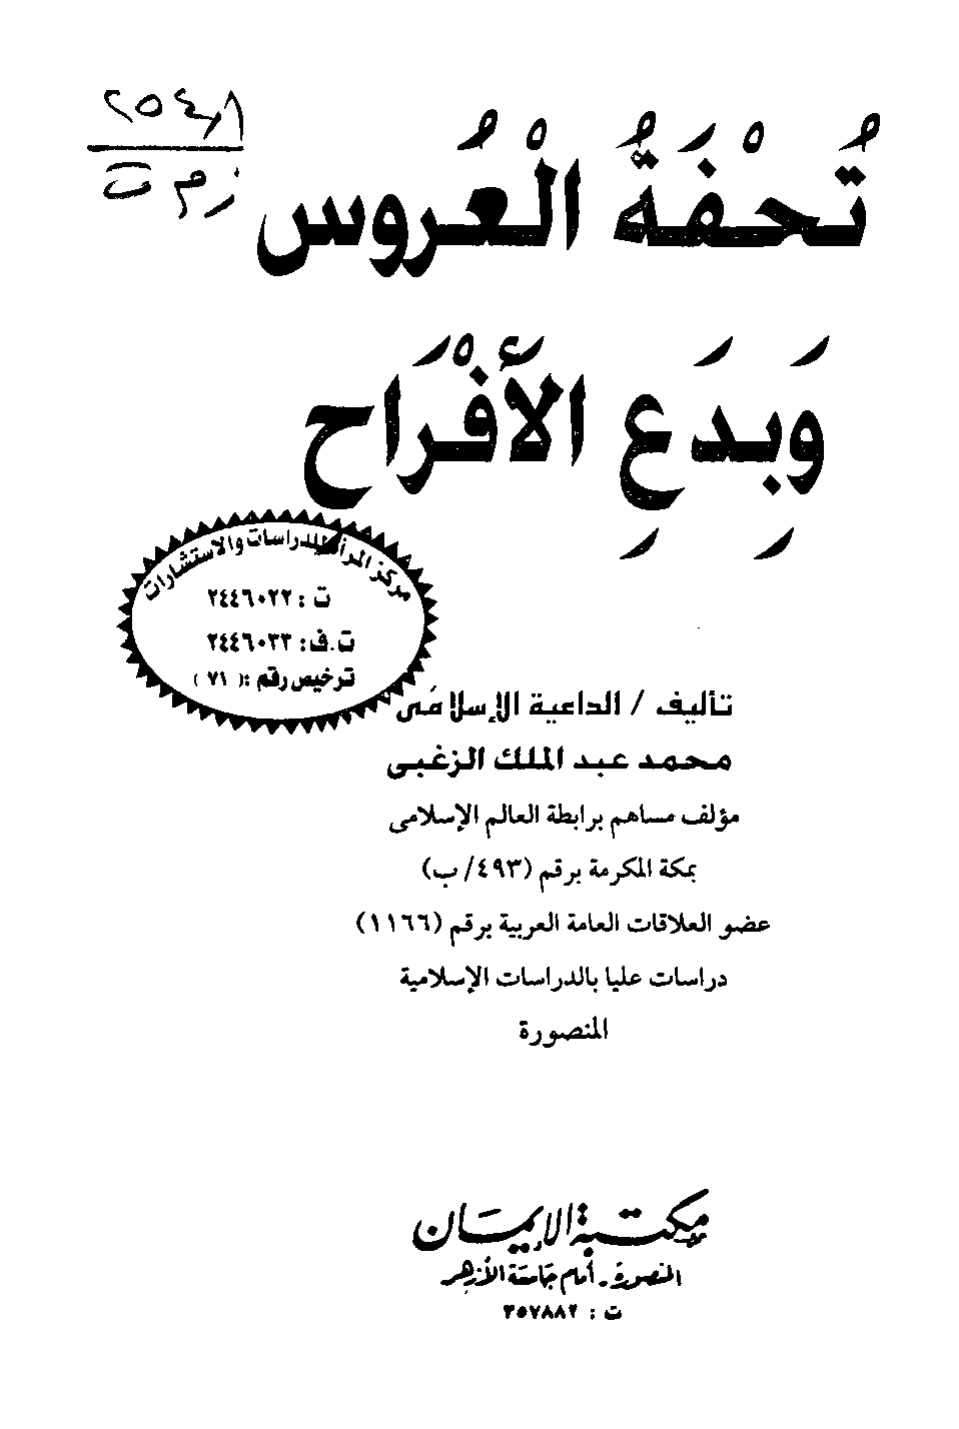 ٢٥٤٫٨
ز م ت
تُحْفَةُ الْعُروس
وَبِدَعِ الأَفْرَاح
مركز المرأة للدراسات والاستشارات
ت : ٢٤٤٦٠٢٢
ت.ف: ٢٤٤٦٠٣٣
ترخيص رقم :( ٧١ )
تأليف / الداعية الإسلامى
محمد عبد الملك الزغبى
مؤلف مساهم برابطة العالم الإسلامى
بمكة المكرمة برقم (٤٩٣/ ب)
عضو العلاقات العامة العربية برقم (١١٦٦)
دراسات عليا بالدراسات الإسلامية
المنصورة
مكتبة الإيمان
المنصورة ـ أمام جامعة الأزهر
ت : ٣٥٧٨٨٢